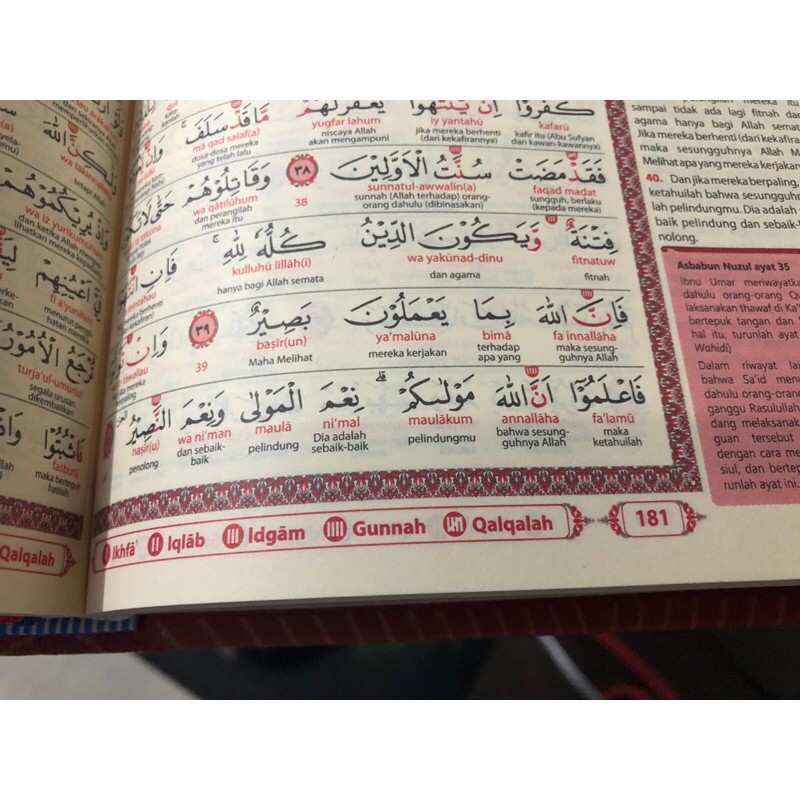 كَفَرُوْٓا اِنْ يَّنْتَهُوْا يُغْفَرْ لَهُمْ مَّا قَدْ سَلَفَۚ
kafarū iy yantahū yugfar lahum mā qad salaf(a)
kafir itu (Abu Sufyan dan kawan-kawannya) jika mereka berhenti (dari kekafirannya) niscaya Allah akan mengampuni dosa-dosa mereka yang telah lalu
فَقَدْ مَضَتْ سُنَّتُ الْاَوَّلِيْنَ ٣٨ وَقَاتِلُوْهُمْ
faqad maḍat sunnatul-awwalīn(a) 38 wa qātilūhum
sungguh, berlaku (kepada mereka) sunnah (Allah terhadap) orang-orang dahulu (dibinasakan) dan perangilah mereka itu
فِتْنَةٌ وَّيَكُوْنَ الدِّيْنُ كُلُّهٗ لِلّٰهِۚ فَاِنِ
fitnatuw wa yakūnad-dīnu kulluhū lillāh(i)
fitnah dan agama hanya bagi Allah semata
فَاِنَّ اللّٰهَ بِمَا يَعْمَلُوْنَ بَصِيْرٌ ٣٩ وَاِنْ
fa innallāha bimā ya'malūna baṣīr(un) 39
maka sesung-guhnya Allah terhadap apa yang mereka kerjakan Maha Melihat
فَاعْلَمُوْٓا اَنَّ اللّٰهَ مَوْلٰىكُمْۗ نِعْمَ الْمَوْلٰى وَنِعْمَ النَّصِيْرُ
fa'lamū annallāha maulākum ni'mal maulā wa ni'man naṣīr(u)
maka ketahuilah bahwa sesung-guhnya Allah pelindungmu Dia adalah sebaik-baik pelindung dan sebaik-baik penolong
Ikhfā' Iqlāb Idgām Gunnah Qalqalah
181
sampai tidak ada lagi fitnah dan
agama hanya bagi Allah semat
Jika mereka berhenti (dari kekafiran
maka sesungguhnya Allah M
Melihat apa yang mereka kerjakan
40. Dan jika mereka berpaling,
ketahuilah bahwa sesungguhn
lah pelindungmu. Dia adalah
baik pelindung dan sebaik-b
nolong.
Asbabun Nuzul ayat 35
Ibnu Umar meriwayatka
dahulu orang-orang Qu
laksanakan thawaf di Ka'
bertepuk tangan dan
hal itu, turunlah ayat
Wahidi)
Dalam riwayat lai
bahwa Sa'id menu
dahulu orang-oran
ganggu Rasulullah
dang melaksana
guan tersebut
dengan cara me
siul, dan bertep
runlah ayat ini.
Qalqalah